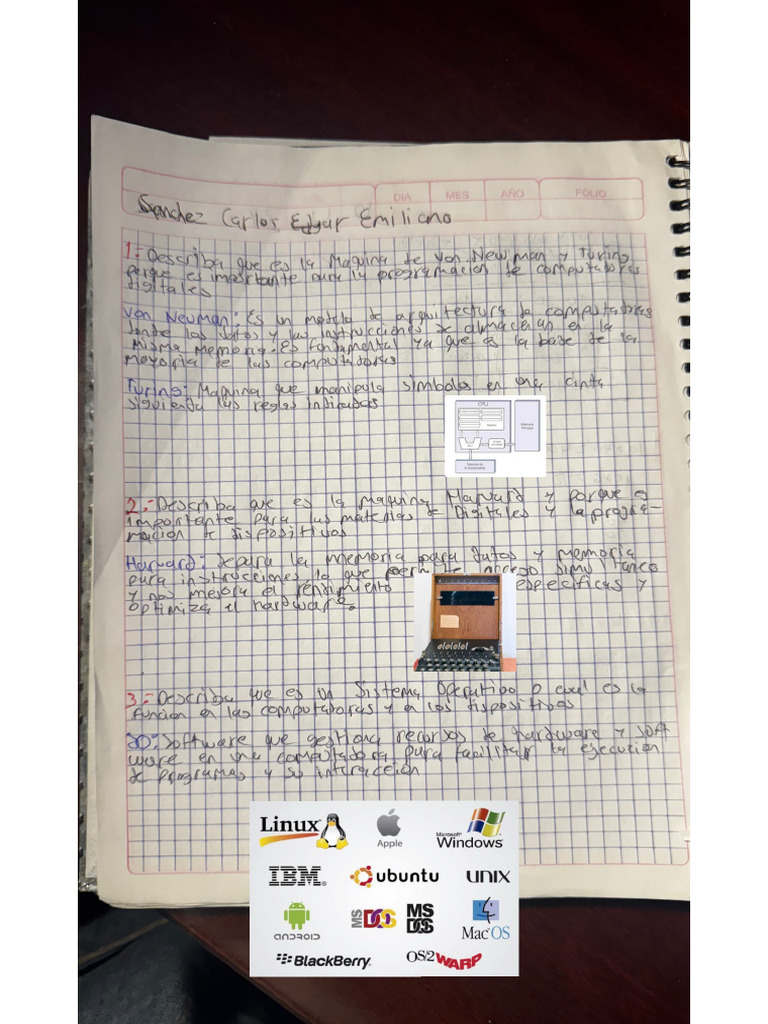 DIA MES AÑO FOLIO
Sanchez Carlos Edgar Emiliano
1.- Describa que es la Maquina de Von. Newman y Turing
porque es importante para la programacion de computadores
digitales
Von Newman: Es un modelo de arquitectura de computadoras
donde los datos y las instrucciones se almacenan en la
misma memoria. Es fundamental ya que es la base de la
mayoria de las computadoras
Turing: Maquina que manipula simbolos en una cinta
siguiendo las reglas indicadas
CPU
2.- Describa que es la maquina Harvard y porque es
importante para las materias de Digitales y la progra-
macion de dispositivos
Harvard: Separa la memoria para datos y memoria
para instrucciones lo que acceso
y nos mejora el rendimiento especificas y
optimiza el hardware.
3.- Describa que es un Sistema Operativo o cual es la
funcion en las computadoras y a los dispositivos
SO: Software que gestiona recursos de hardware y soft
ware en una computadora para facilitar la ejecucion
de programas y su interaccion
Linux Apple Microsoft Windows
IBM ubuntu UNIX
ANDROID MS DOS MS DOS Mac OS
BlackBerry OS/2 WARP